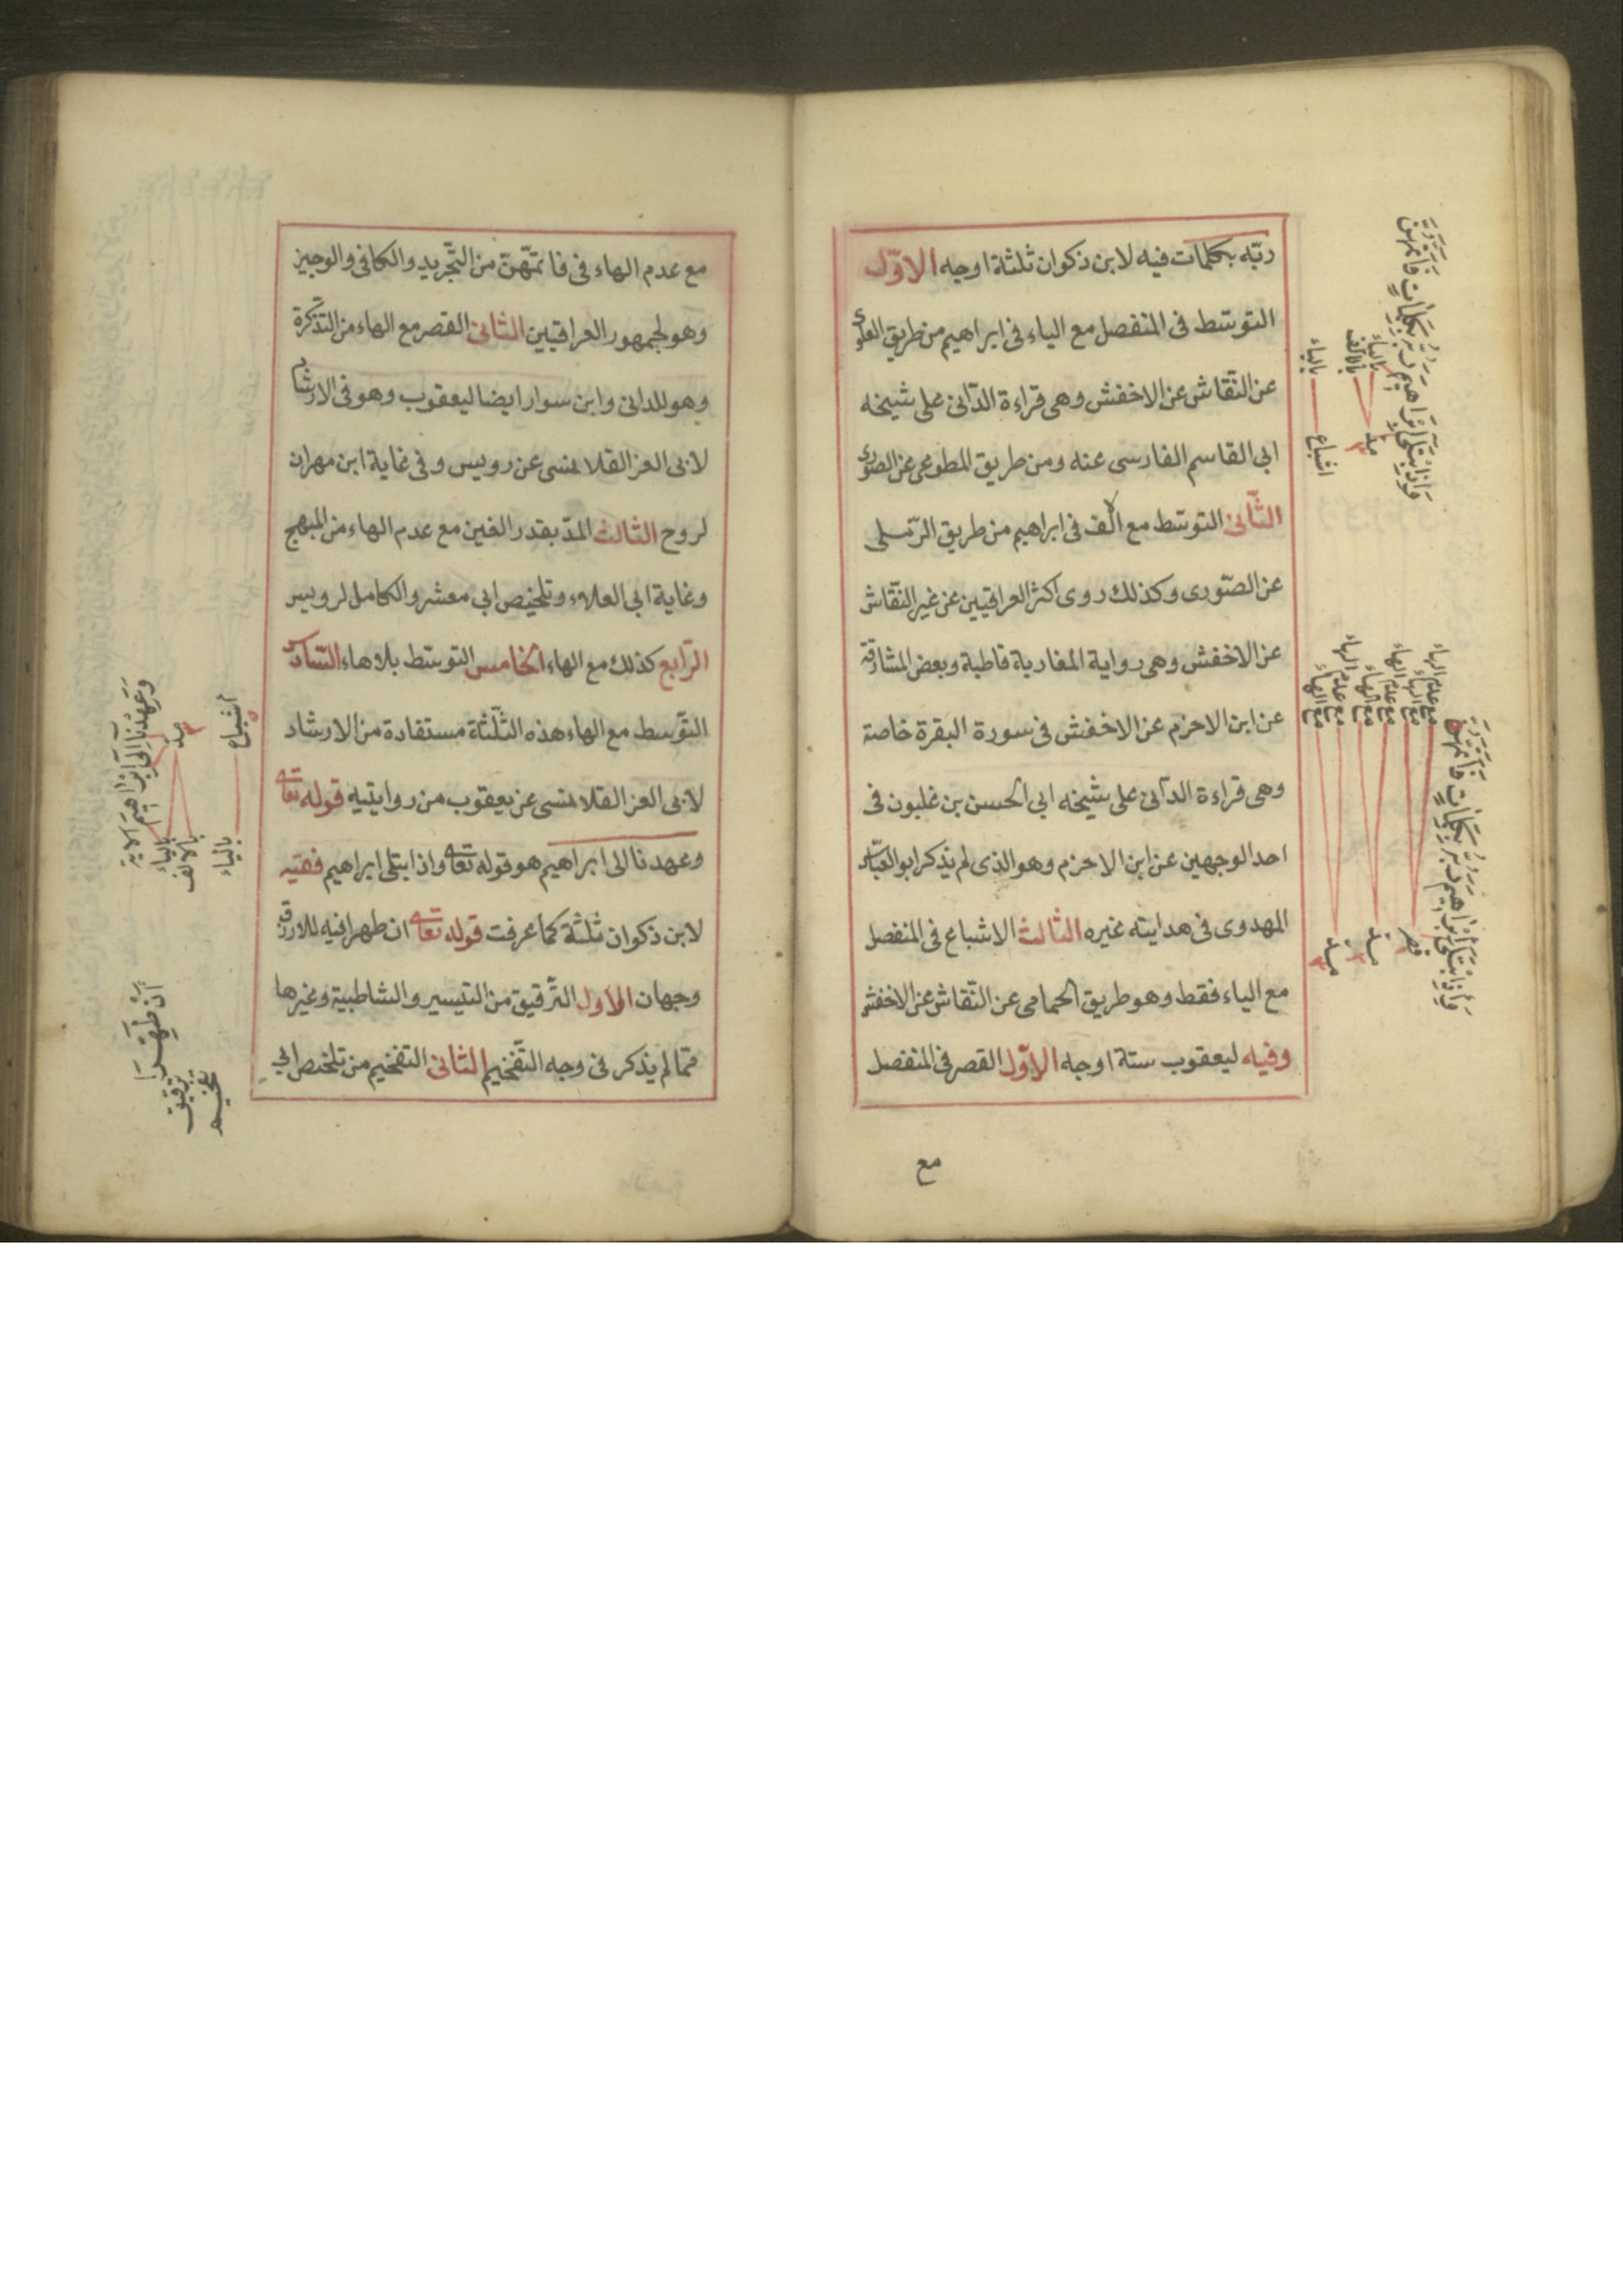 ربّه بكلمات فيه لابن ذكوان ثلثة اوجه الاوّل
التوسّط فى المنفصل مع الياء فى ابراهيم من طريق العلوى
عن النّقاش عن الاخفش وهى قراءة الدّانى على شيخه
ابى القاسم الفارسى عنه ومن طريق المطوعى عن الصّورى
الثّانى التوسّط مع الالف فى ابراهيم من طريق الرّملى
عن الصّورى وكذلك روى اكثر العراقيين عن غير النّقاش
عن الاخفش وهى رواية المغاربة قاطبة وبعض المشارقة
عن ابن الاخزم عن الاخفش فى سورة البقرة خاصة
وهى قراءة الدّانى على شيخه ابى الحسن بن غلبون فى
احد الوجهين عن ابن الاخزم وهو الذى لم يذكر ابو العبّاس
المهدوى فى هدايته غيره الثالث الاشباع فى المنفصل
مع الياء فقط وهو طريق الحمامى عن النّقاش عن الاخفش
وفيه ليعقوب ستة اوجه الاوّل القصر فى المنفصل
مع
واذ ابتلى ابراهيم ربه بكلمات فاتمهن
مد
بالياء
بالالف
اشباع
بالياء
واذ ابتلى ابراهيم ربه بكلمات فاتمهن
قصر
مع عدم الهاء
مع الهاء
مد
مع عدم الهاء
مع الهاء
مد
مع عدم الهاء
مع الهاء
مع عدم الهاء فى فاتمّهنّ من التّجريد والكافى والوجيز
وهو لجمهور العراقيين الثانى القصر مع الهاء من التذكرة
وهو للدانى وابن سوار ايضا ليعقوب وهو فى الارشاد
لابى العز القلانسى عن رويس وفى غاية ابن مهران
لروح الثالث المدّ بقدر الفين مع عدم الهاء من المبهج
وغاية ابى العلاء وتلخيص ابى معشر والكامل لرويس
الرّابع كذلك مع الهاء الخامس التوسّط بلا هاء السّادس
التّوسط مع الهاء هذه الثّلثة مستفادة من الارشاد
لابى العز القلانسى عن يعقوب من روايتيه قوله تعا
وعهدنا الى ابراهيم هو قوله تعا واذ ابتلى ابراهيم ففيه
لابن ذكوان ثلثة كما عرفت قوله تعا ان طهرا فيه للازرق
وجهان الاول التّرقيق من التيسير والشاطبية وغيرها
ممّا لم يذكر فى وجه التّفخيم الثانى التفخيم من تلخيص ابى
وعهدنا الى ابراهيم الاية
مد
بالياء
بالالف
اشباع
بالياء
ان طهرا
ترقيق
تفخيم